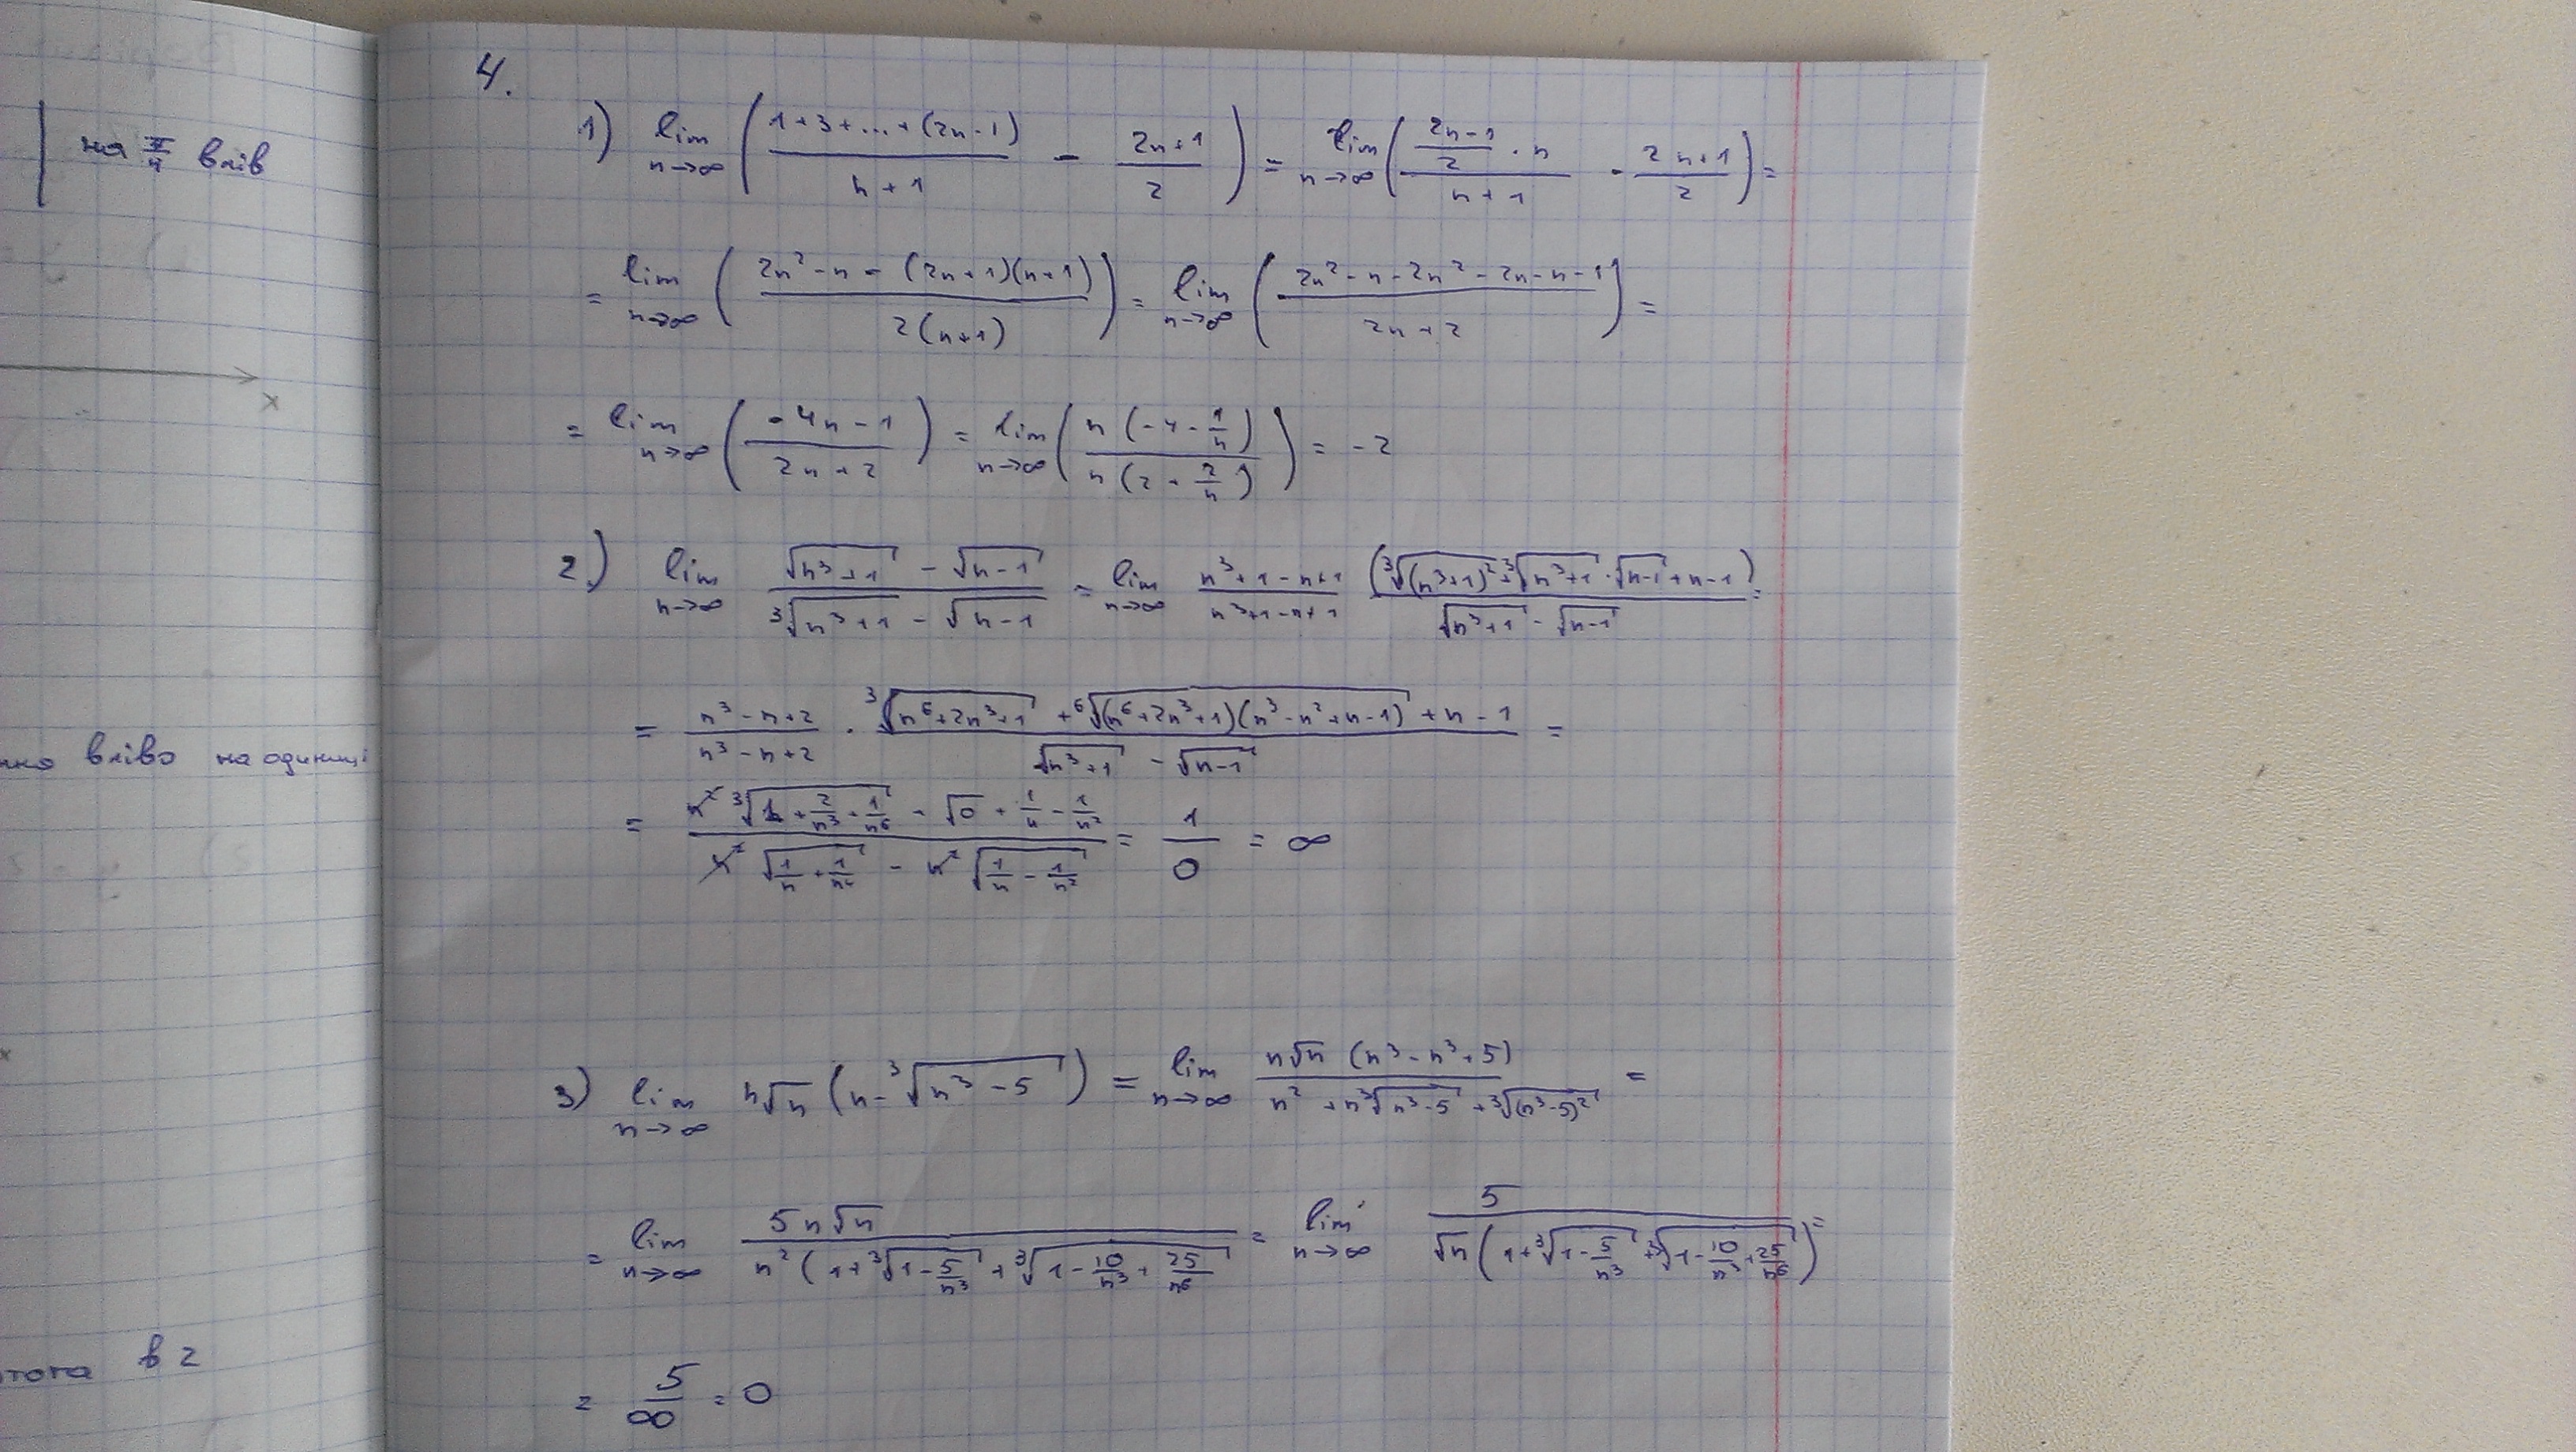 на π/4 влів
x
вліво на одиниці
в 2
4.
1) lim n→∞ ( (1+3+...+(2n-1))/(n+1) - (2n+1)/2 ) = lim n→∞ ( ((2n-1)/2 · n)/(n+1) - (2n+1)/2 ) =
= lim n→∞ ( (2n² - n - (2n+1)(n+1))/(2(n+1)) ) = lim n→∞ ( (2n² - n - 2n² - 2n - n - 1)/(2n+2) ) =
= lim n→∞ ( (-4n-1)/(2n+2) ) = lim n→∞ ( (n(-4 - 1/n))/(n(2 + 2/n)) ) = -2
2.) lim n→∞ (√(n³+1) - √(n-1))/(³√(n³+1) - √(n-1)) = lim n→∞ (n³+1-n+1)/(n³+1-n+1) (³√(n³+1)² + ³√(n³+1) · √(n-1) + n-1)/(√(n³+1) - √(n-1)) =
= (n³-n+2)/(n³-n+2) · (³√(n⁶+2n³+1) + ⁶√((n⁶+2n³+1)(n³-n²+n-1)) + n - 1)/(√(n³+1) - √(n-1)) =
= (n² ³√(1 + 2/n³ + 1/n⁶) + √0 + 1/n - 1/n²)/(n² √(1/n + 1/n⁴) - n² √(1/n - 1/n²)) = 1/0 = ∞
3) lim n→∞ n√n (n - ³√(n³-5)) = lim n→∞ (n√n (n³-n³+5))/(n² + n³√(n³-5) + ³√(n³-5)²) =
= lim n→∞ (5n√n)/(n²(1 + ³√(1 - 5/n³) + ³√(1 - 10/n³ + 25/n⁶) = lim n→∞ 5/(√n(1 + ³√(1 - 5/n³) + ³√(1 - 10/n³ + 25/n⁶))) =
= 5/∞ = 0